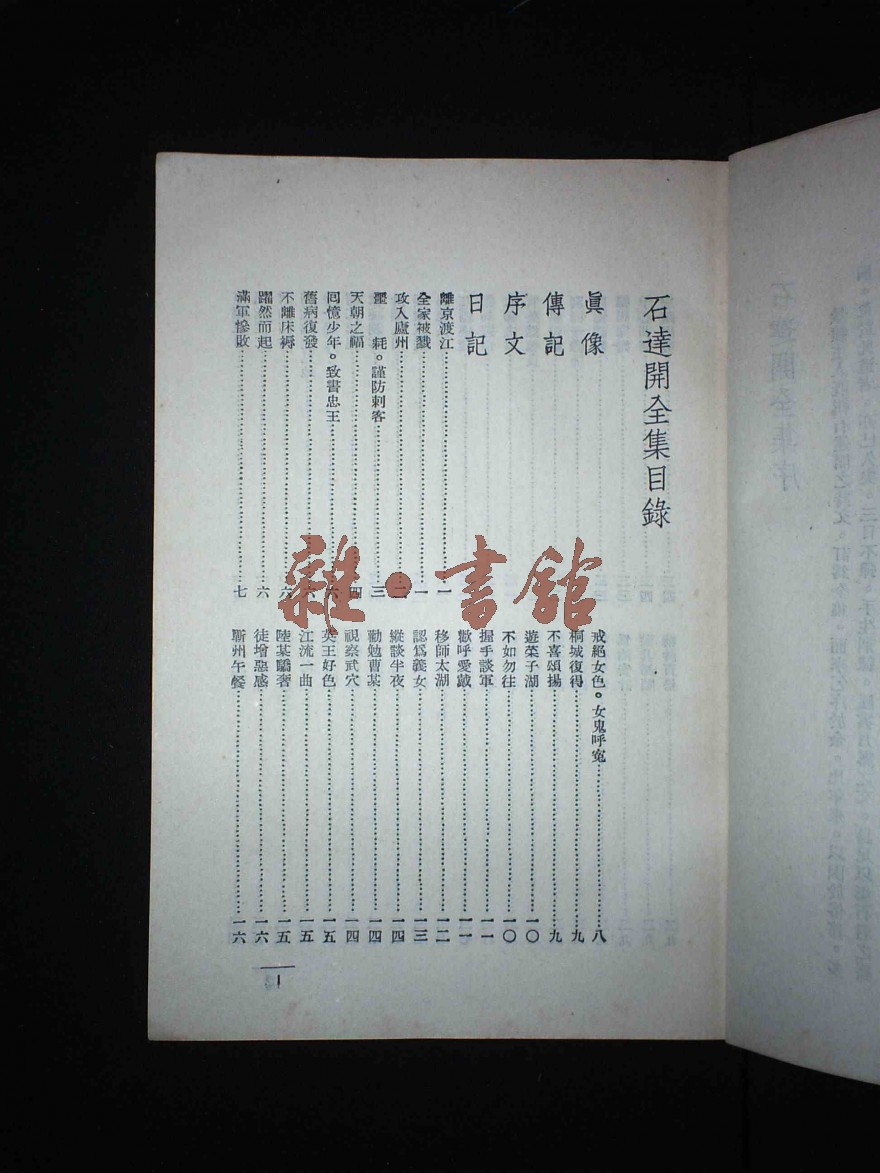 石達開全集目錄
眞像
傳記
序文
日記
離京渡江……一
全家被戮……一
攻入廬州……二
噩　耗。謹防刺客……三
天朝之幅……四
回憶少年。致書忠王……六
舊病復發……六
不離床褥……六
躍然而起……六
滿軍慘敗……七
戒絕女色。女鬼呼寃……八
桐城復得……九
不喜頌揚……九
遊菜子湖……一〇
不如勿往……一〇
握手談軍……一一
歡呼愛戴……一一
移師太湖……一二
認爲義女……一三
縱談半夜……一四
勸勉曹某……一四
視察武穴……一四
英王好色……一五
江流一曲……一五
陸某驕奢……一五
徒增惡感……一六
蘄州午餐……一六
一
雜·書館
石達開全集序